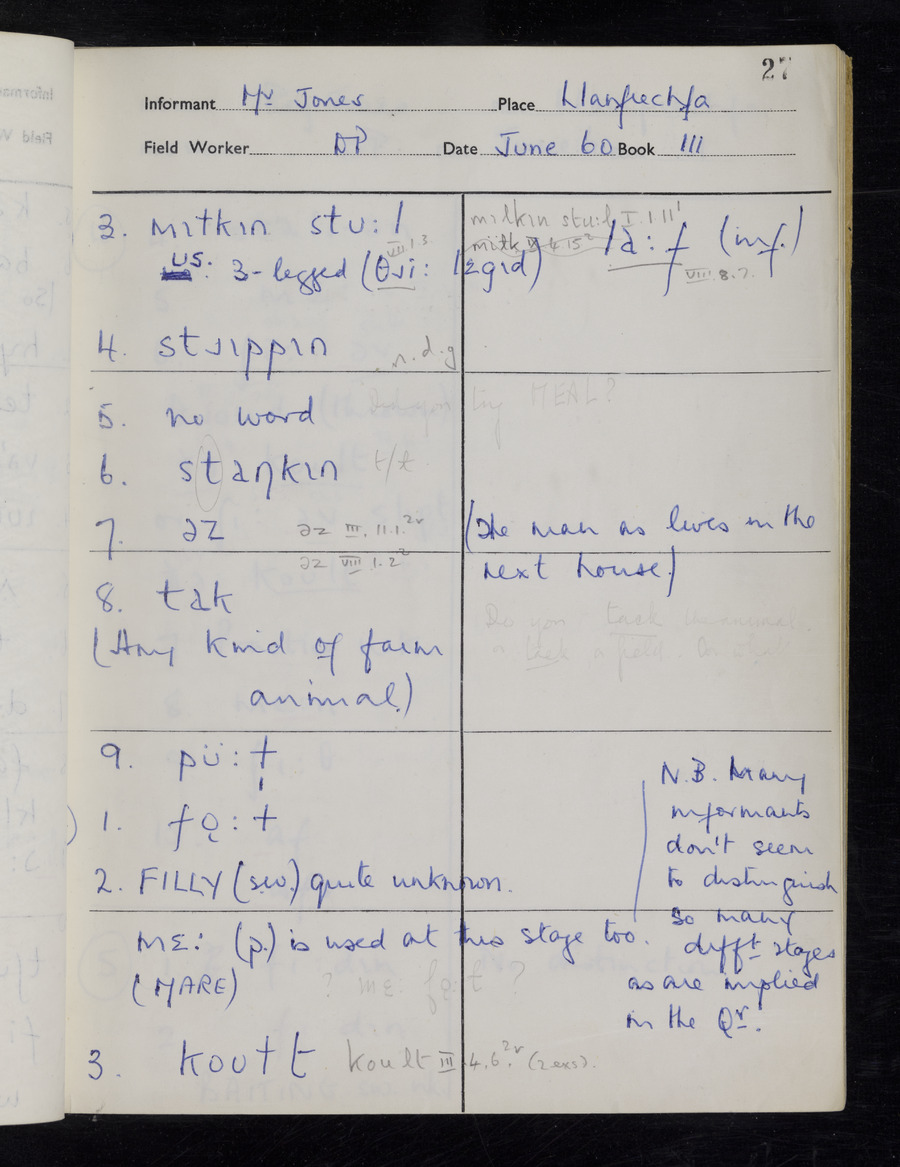 27
Informant Mr Jones Place Llanfrechfa
Field Worker DP Date June 60 Book III
3. mɪɫkɪn stu:l
milkin stu:l I.1.11'
la:f (inf.)
VIII.8.7.
US. 3-legged (θɹi: lɛgɪd)
VII.1.3
4. stɹɪppɪn n.d.g
5. no word
try MEAL?
6. staŋkɪn t/t
7. əz əz III.11.1.2v
əz VIII.1.2²
(The man as lives in the
next house.)
8. tak
(Any kind of farm
animal.)
Do you tack
a field.
9. pü:ɫ
1. fo̜:ɫ
2. FILLY (s.w.) quite unknown.
mɛ: (p.) is used at this stage too.
(MARE)
? mɛ: fo:t ?
N.B. Many
informants
don't seem
to distinguish
so many
diffᵗ stages
as are implied
in the Qr.
3. kouɫt koult III.4.6.2v (2 exs).